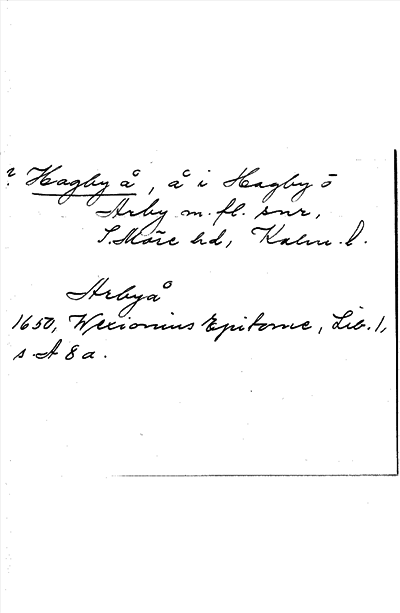 ? Hagby å, å i Hagby o
Arby m.fl. snr,
S. Möre hd, Kalm. l.
Arbyå
1650, Wexionius Epitome, Lib. 1,
s. A 8 a.